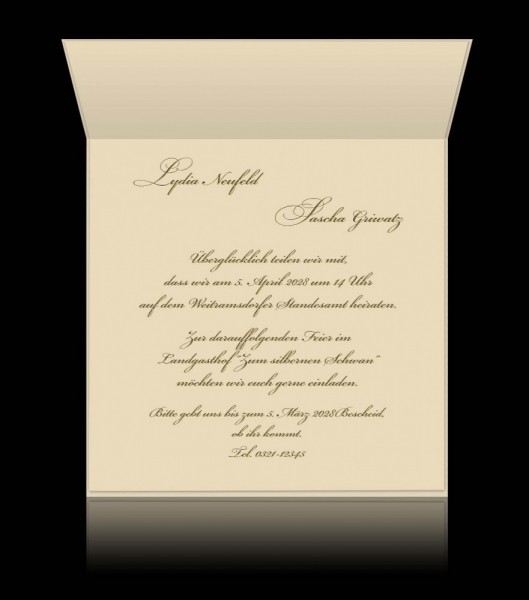 Lydia Neufeld
Sascha Griwatz
Überglücklich teilen wir mit,
dass wir am 5. April 2028 um 14 Uhr
auf dem Weitramsdorfer Standesamt heiraten.
Zur darauffolgenden Feier im
Landgasthof "Zum silbernen Schwan"
möchten wir euch gerne einladen.
Bitte gebt uns bis zum 5. März 2028Bescheid,
ob ihr kommt.
Tel. 0321-12345